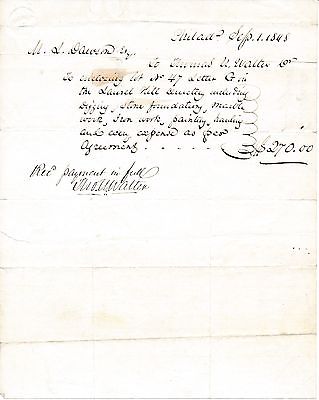 Philad. Sep. 1. 1848
M. L. Dawson Esq.
To Thomas U. Walter Dr
To enclosing lot No 47 Letter G on
the Laurel Hill Cemetery including
Digging, stone foundation, marble
work, Iron work, painting, hauling
and every expense as per
Agreement . . . . . $270.00
Recd payment in full
Thos U Walter